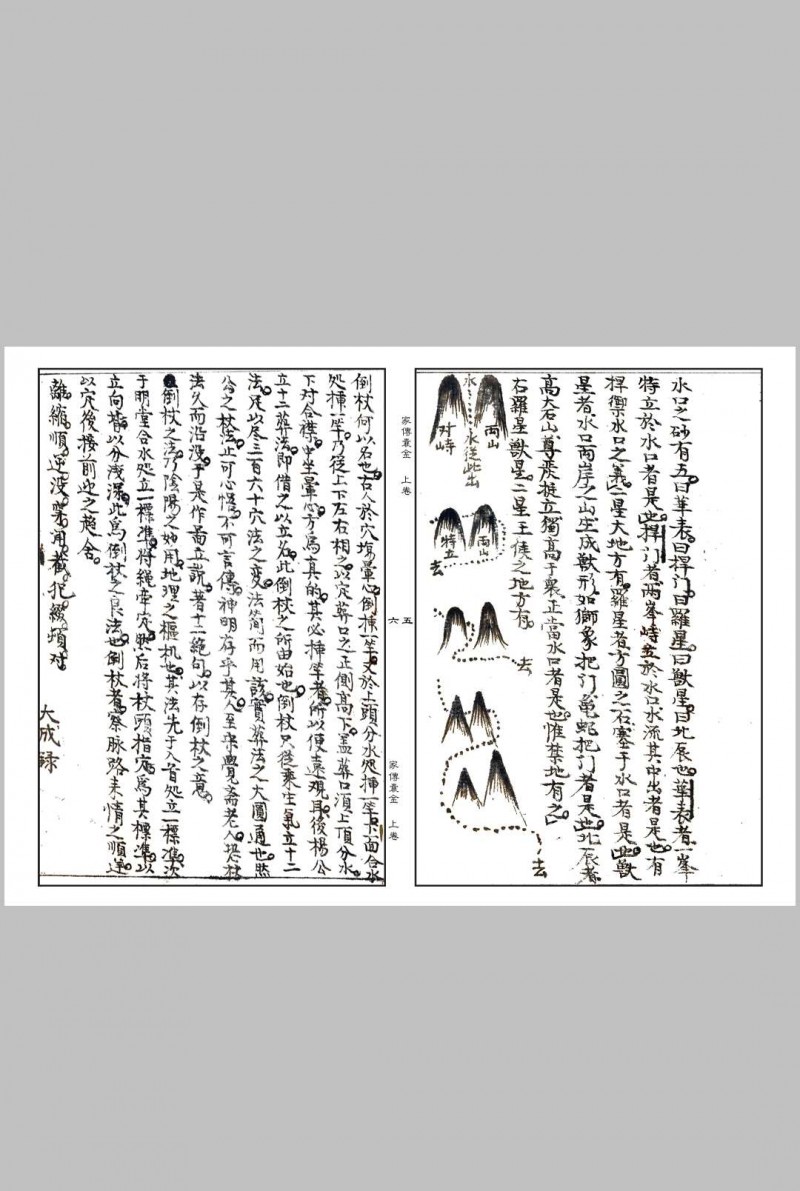 水口之砂有五曰華表曰捍门曰羅星曰獸星曰北辰也華表者一峯
特立於水口者是也捍门者两峯峙立於水口水流其中出者是也有
捍禦水口之義二星大地方有羅星者方圓之石塞于水口者是也獸
星者水口两岸之山生成獸形如獅象把门龜蛇把门者是也北辰者
高大石山尊嚴挺立獨高于衆正當水口者是也惟禁地有之
右羅星獸星二星王侯之地方有
两山
水
对峙
水從此出
两山
特立
去
去
去
家傳囊金 上卷
五
六
家傳囊金 上卷
倒杖何以名也古人於穴塲暈心倒揷一竿又於上頭分水処揷一竿下面合水
処揷一竿乃從上下左右相之以定葬口之正側高下盖葬口須上頂分水
下对合襟中坐暈心方爲真的其必揷竿者所以便遠观耳後楊公
立十二葬法即借之以立名此倒杖之所由始也倒杖只從乘生氣立十二
法足以尽三百六十穴法之变法简而用該實葬法之大圓通也然
公之杖法止可心悟不可言傳神明存乎其人至 覺斋老人恐杖
法久而沿没于是作啚立說著十二絶句以存倒杖之意
倒杖之法乃陰陽之妙用地理之樞机也其法先于入首処立一標準次
于明堂合水処立一標準将繩牽定然后将杖頭指定爲其標準以
立向皆以分浅深此爲倒杖之良法也倒杖者察脉路来情之順逆
以穴後接前迎之趋舍
離縮順逆没穿用截 綴頓对
大成録